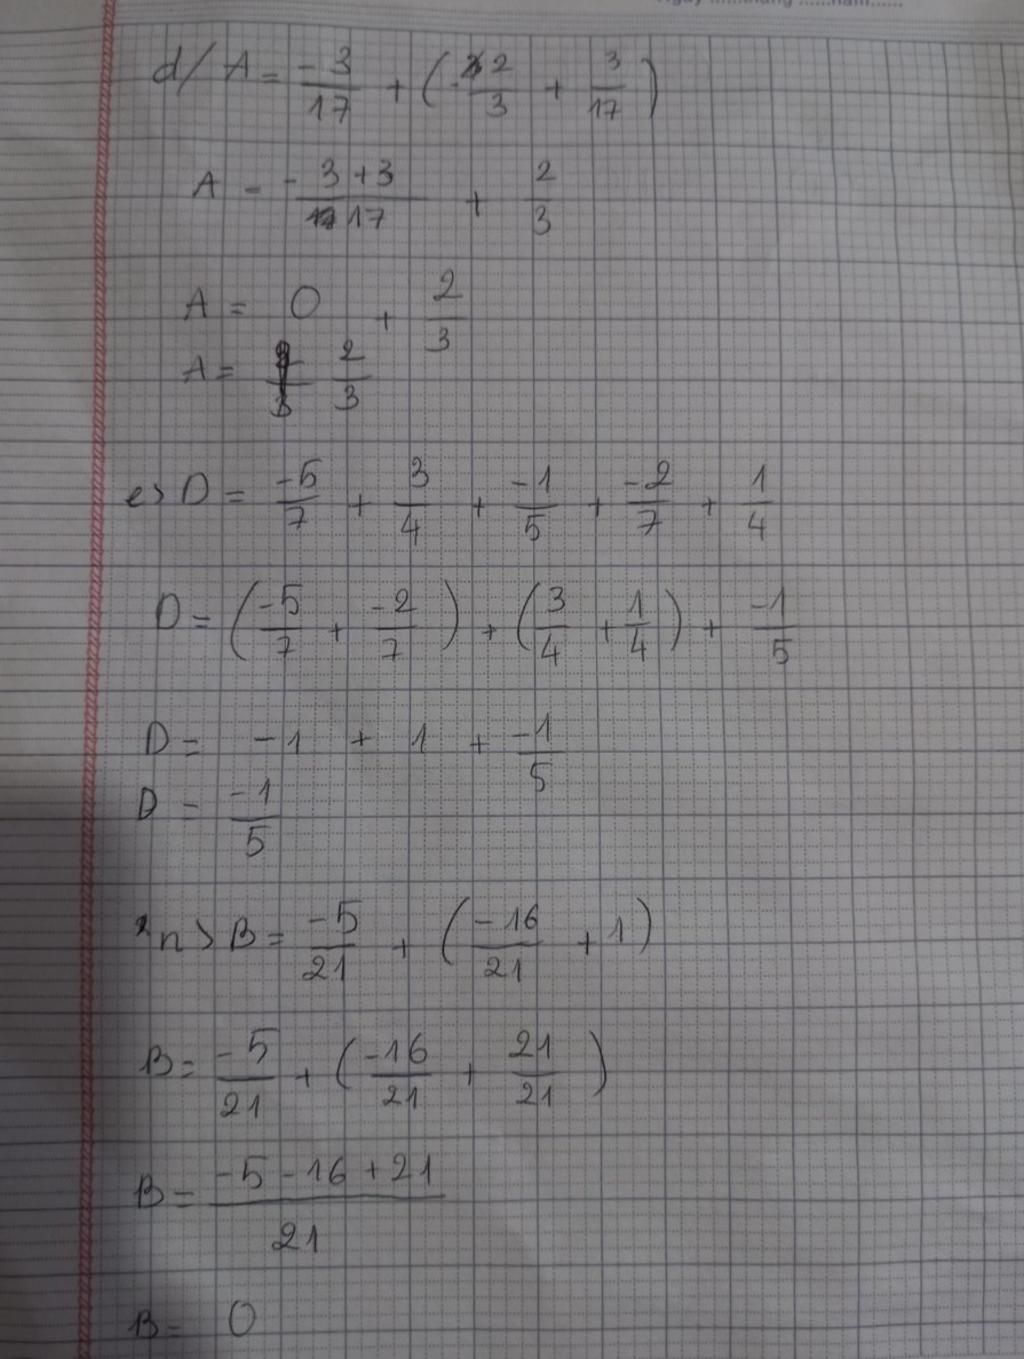 d/ A = -3/17 + (2/3 + 3/17)
A = -3+3/17 + 2/3
A = 0 + 2/3
A = 2/3
e> D = -5/7 + 3/4 + -1/5 + -2/7 + 1/4
D = (-5/7 + -2/7) + (3/4 + 1/4) + -1/5
D = -1 + 1 + -1/5
D = -1/5
n> B = -5/21 + (-16/21 + 1)
B = -5/21 + (-16/21 + 21/21)
B = -5-16+21/21
B = 0